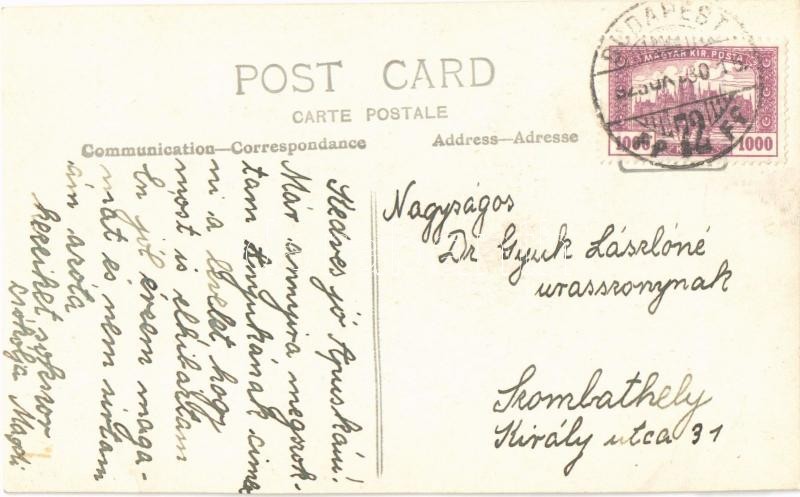 POST CARD
CARTE POSTALE
Communication—Correspondance
Address—Adresse
BUDAPEST
MAGYAR KIR. POSTA
72
1000
1000
Kedves jó Apuskám!
Már annyira megszok-
tam Anyukának címez
ni a levelet hogy
most is elhibáztam
Én jól érzem maga-
mat és nem sírtam
ám azóta
kezeiket sokszor
csókolja Magdi
Nagyságos
Dr Gyuk Lászlóné
urasszonynak
Szombathely
Király utca 31